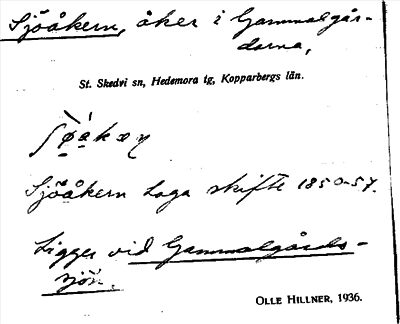 Sjöåkern, åker i Gammalgår-
darna,
St. Skedvi sn, Hedemora tg, Kopparbergs län.
Sjöåkern Laga skifte 1850-57.
Ligger vid Gammalgårds-
sjön.
OLLE HILLNER, 1936.